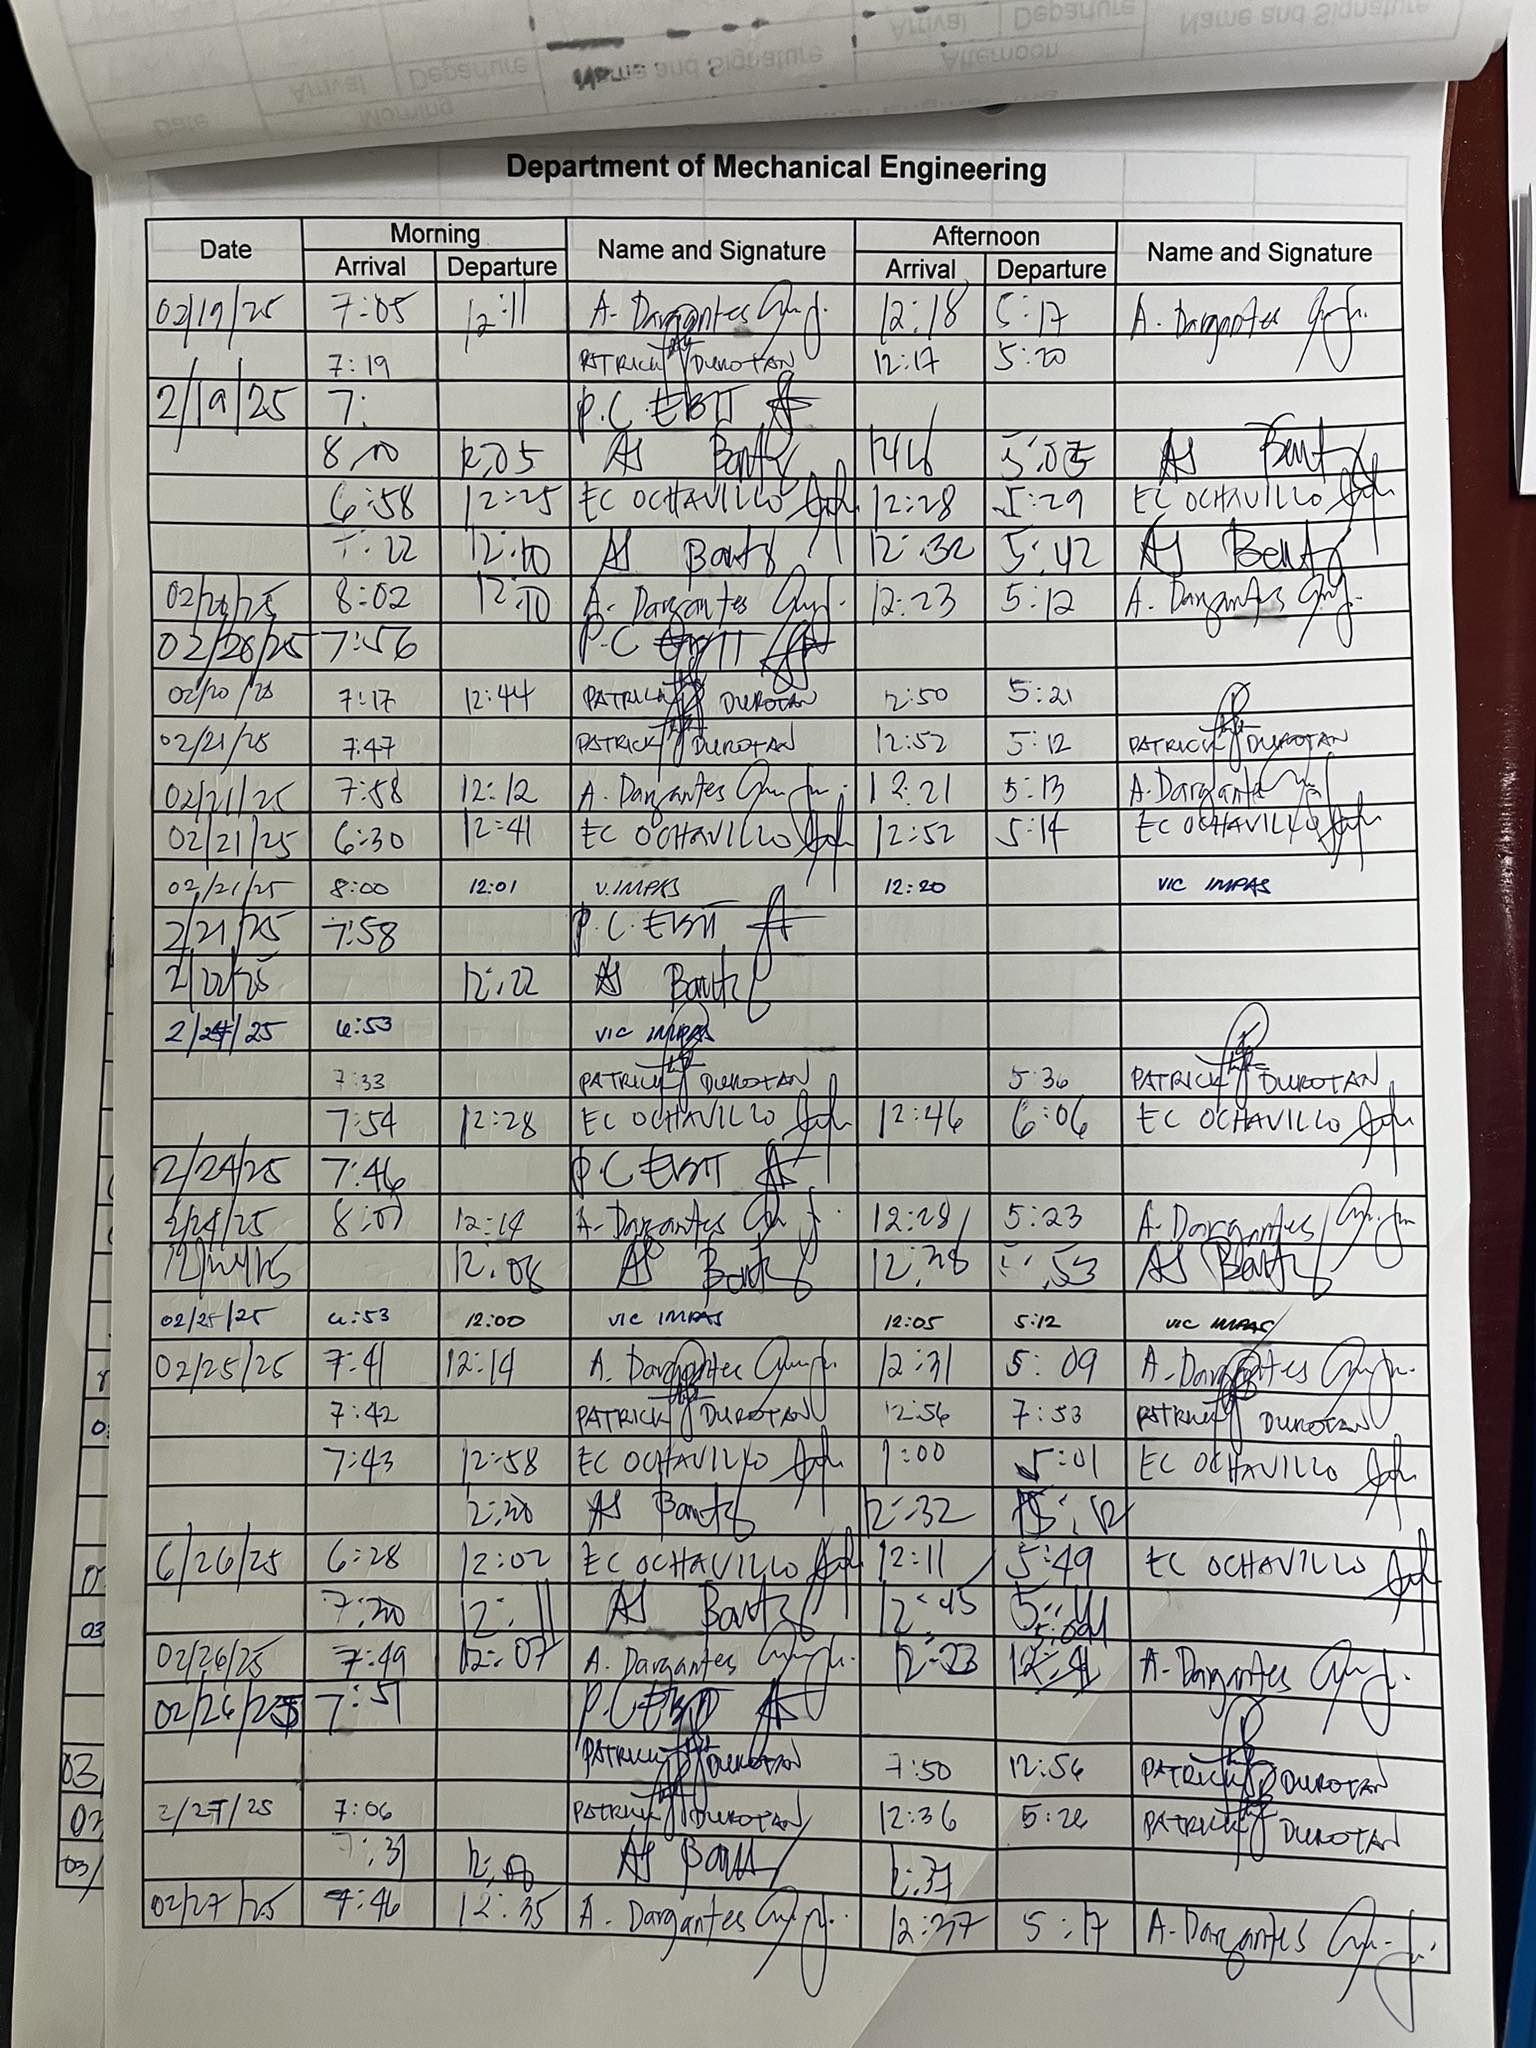 Department of Mechanical Engineering
Date Morning Name and Signature Afternoon Name and Signature
Arrival Departure Arrival Departure
02/19/25 7:05 12:11 A. Dargantes 12:18 5:17 A. Dargantes
7:19 PATRICK DUROTAN 12:17 5:20
2/19/25 7: P.C. EBIT
8:00 12:05 AS 5:05 AS
6:58 12:25 EC OCHAVILLO 12:28 5:29 EC OCHAVILLO
7:22 12:10 AS 12:32 5:42 AS
02/20/25 8:02 12:10 A. Dargantes 12:23 5:12 A. Dargantes
02/20/25 7:56 P.C EBIT
02/20/25 7:17 12:44 PATRICK DUROTAN 12:50 5:21
02/21/25 7:47 PATRICK DUROTAN 12:52 5:12 PATRICK DUROTAN
02/21/25 7:58 12:12 A. Dargantes 12:21 5:13 A. Dargante
02/21/25 6:30 12:41 EC OCHAVILLO 12:52 5:14 EC OCHAVILLO
02/21/25 8:00 12:01 V. IMPAS 12:20 VIC IMPAS
2/21/25 7:58 P.C. EBIT
2/22/25 12:22 AS
2/24/25 6:53 VIC IMPAS
7:33 PATRICK DUROTAN 5:36 PATRICK DUROTAN
7:54 12:28 EC OCHAVILLO 12:46 6:06 EC OCHAVILLO
2/24/25 7:46 P.C EBIT
2/24/25 8:01 12:14 A. Dargantes 12:28 5:23 A. Dargantes
12:08 AS 12:38 5:53 AS
02/25/25 6:53 12:00 VIC IMPAS 12:05 5:12 VIC IMPAS
02/25/25 7:41 12:14 A. Dargantes 12:31 5:09 A. Dargantes
7:42 PATRICK DUROTAN 12:56 7:53 PATRICK DUROTAN
7:43 12:58 EC OCHAVILLO 1:00 5:01 EC OCHAVILLO
12:20 AS 12:32 5:12
6/26/25 6:28 12:02 EC OCHAVILLO 12:11 5:49 EC OCHAVILLO
7:20 12:11 AS 12:45
02/26/25 7:49 12:07 A. Dargantes 12:23 A. Dargantes
02/26/25 7:51 P.C EBIT
PATRICK DUROTAN 7:50 12:56 PATRICK DUROTAN
2/27/25 7:06 PATRICK DUROTAN 12:36 5:26 PATRICK DUROTAN
7:31 AS 12:37
02/27/25 7:46 12:35 A. Dargantes 12:37 5:17 A. Dargantes